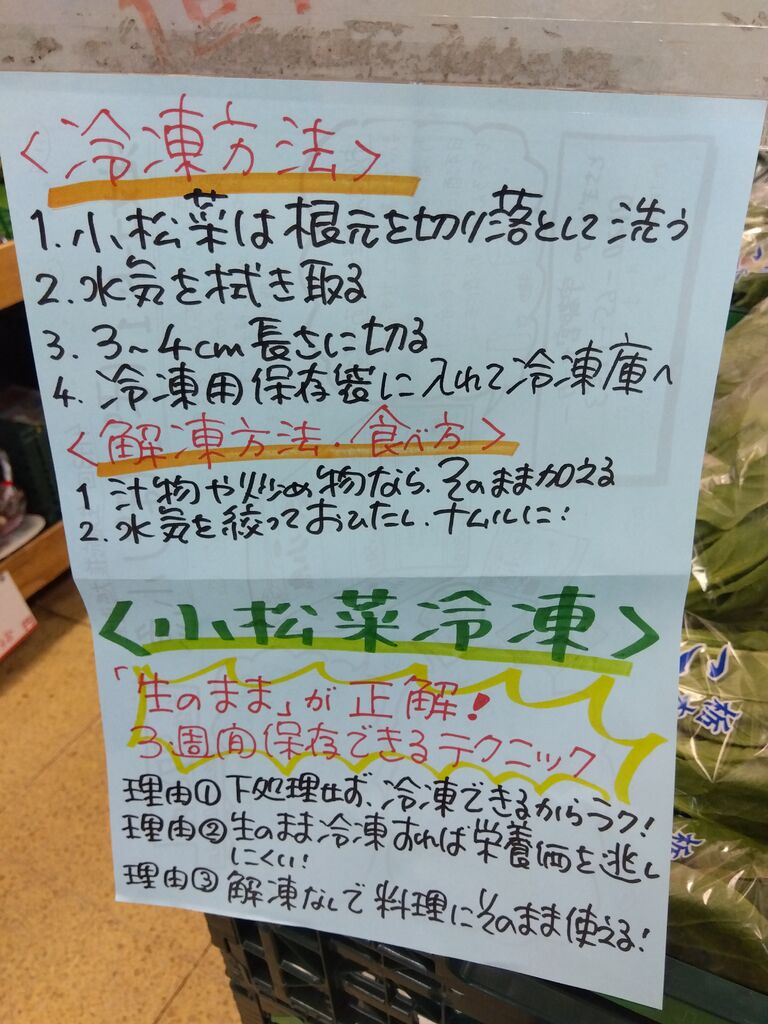 <冷凍方法>
1. 小松菜は根元を切り落として洗う
2. 水気を拭き取る
3. 3~4cm長さに切る
4. 冷凍用保存袋に入れて冷凍庫へ
<解凍方法・食べ方>
1 汁物や炒め物なら、そのまま加える
2. 水気を絞っておひたし、ナムルに!
<小松菜冷凍>
「生のまま」が正解!
3週間保存できるテクニック
理由① 下処理せず、冷凍できるからラク!
理由② 生のまま冷凍すれば栄養価を逃し
にくい!
理由③ 解凍なしで料理にそのまま使える!